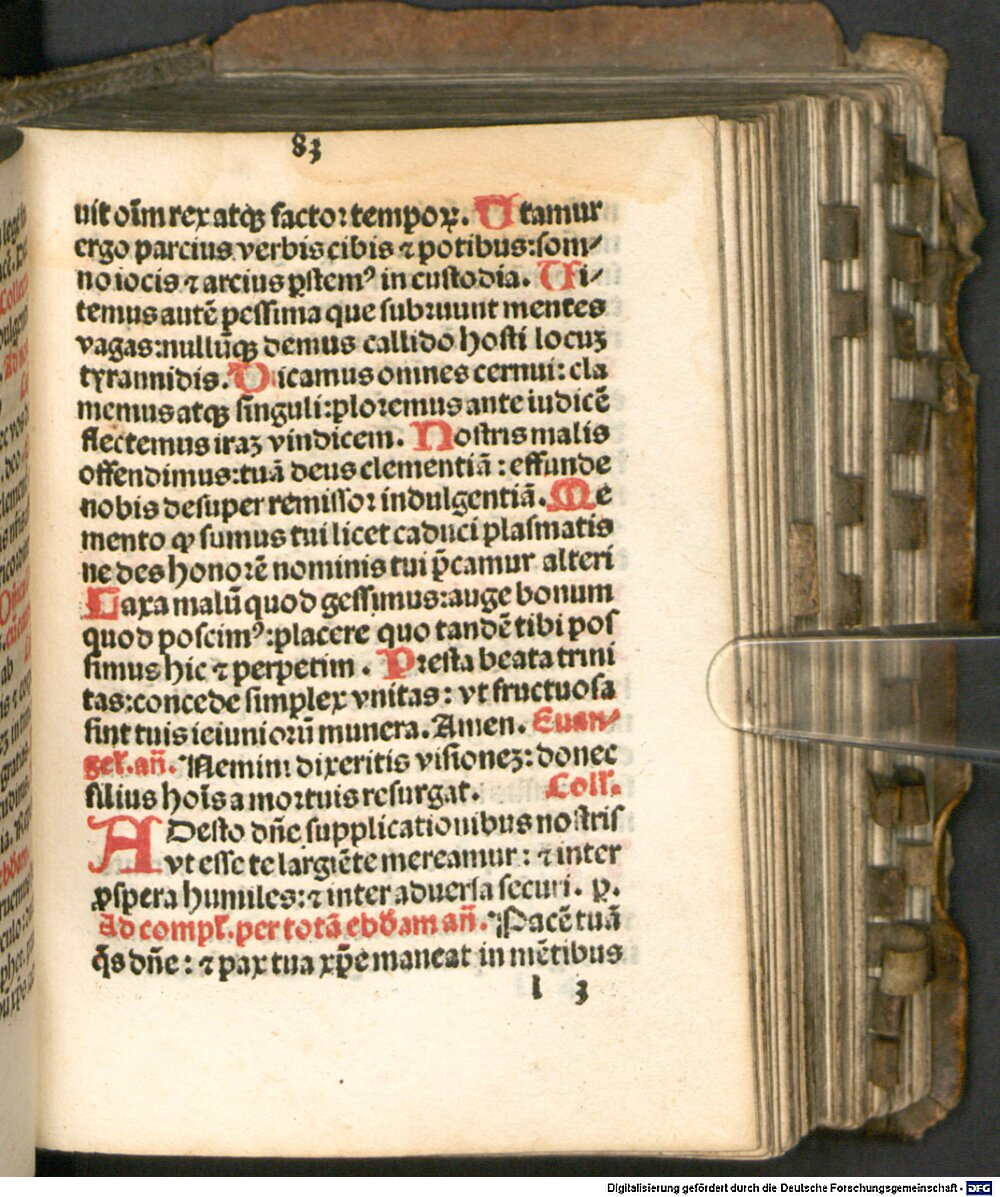 83
uit oīm rex atqꝫ factor tempoꝝ. Utamur
ergo parcius verbis cibis ⁊ potibus:som⸗
no iocis ⁊ arcius p̄stemꝰ in custodia. Ui⸗
temus autē pessima que subruunt mentes
vagas:nullūqꝫ demus callido hosti locuꝫ
tyrannidis. Dicamus omnes cernui: cla
memus atqꝫ singuli:ploremus ante iudicē
flectemus iraꝫ vindicem. Nostris malis
offendimus:tuā deus clementiā: effunde
nobis desuper remissor indulgentiā. Me
mento ꝙ sumus tui licet caduci plasmatis
ne des honorē nominis tui p̄camur alteri
Laxa malū quod gessimus:auge bonum
quod poscimꝰ:placere quo tandē tibi pos
simus hic ⁊ perpetim. Presta beata trini
tas:concede simplex vnitas: vt fructuosa
sint tuis ieiuniorū munera. Amen. Euan⸗
gel̄.an̄. Nemini dixeritis visioneꝫ: donec
filius hoīs a mortuis resurgat. Coll̄.
ADesto dn̄e supplicationibus nostris
vt esse te largiēte mereamur: ⁊ inter
ꝓspera humiles:⁊ inter aduersa securi. p.
Ad compl̄.per totā ebd̄am an̄. Pacē tuā
q̄s dn̄e: ⁊ pax tua xp̄e maneat in mētibus
l 3
Digitalisierung gefördert durch die Deutsche Forschungsgemeinschaft - DFG